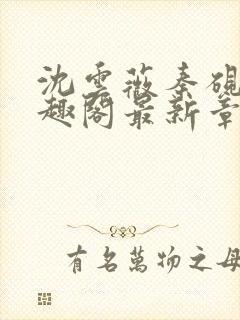 沈雲薇秦硯
趣閣最新章
有名萬物之母